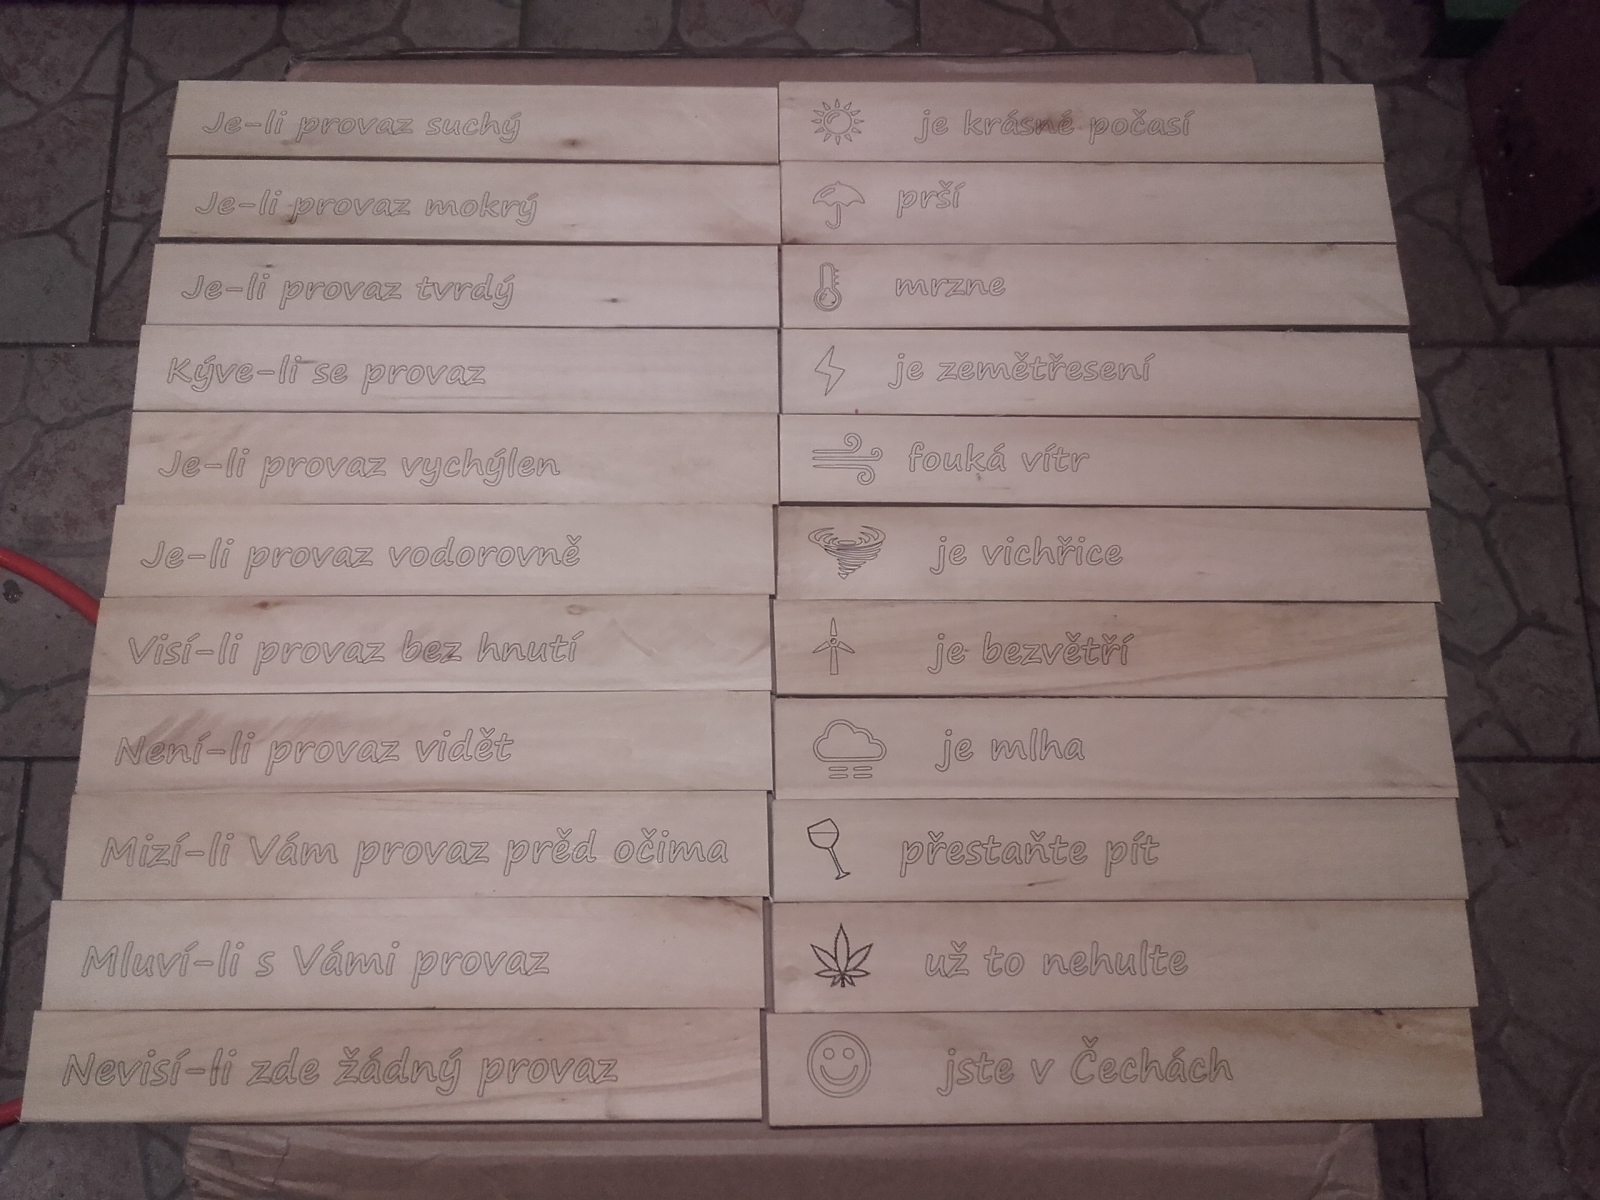 Je-li provaz suchý je krásné počasí
Je-li provaz mokrý prší
Je-li provaz tvrdý mrzne
Kýve-li se provaz je zemětřesení
Je-li provaz vychýlen fouká vítr
Je-li provaz vodorovně je vichřice
Visí-li provaz bez hnutí je bezvětří
Není-li provaz vidět je mlha
Mizí-li Vám provaz prěd očima přestaňte pít
Mluví-li s Vámi provaz už to nehulte
Nevisí-li zde žádný provaz jste v Čechách